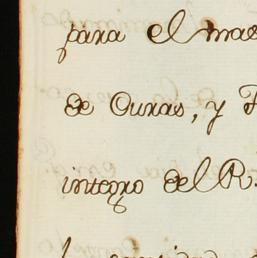 para el mae
de Curas, y F
integro del R.